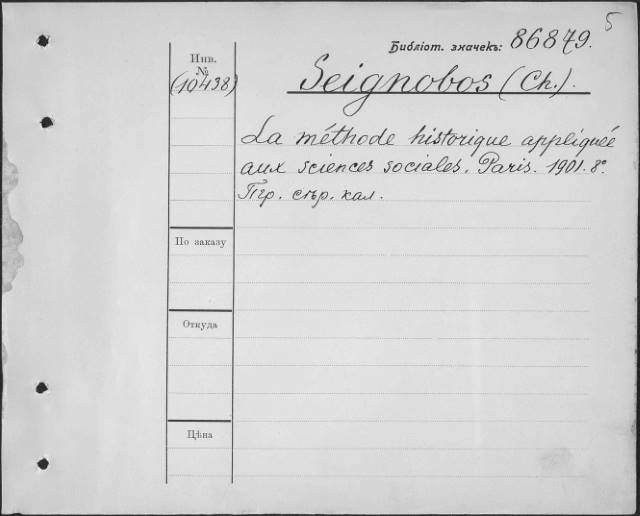 5
Библіот. значекъ: 86879.
Инв.
№
(10438)
Seignobos (Ch.).
La méthode historique appliquée
aux sciences sociales. Paris. 1901. 8º.
Пгр. стр. кал.
По заказу
Откуда
Цѣна